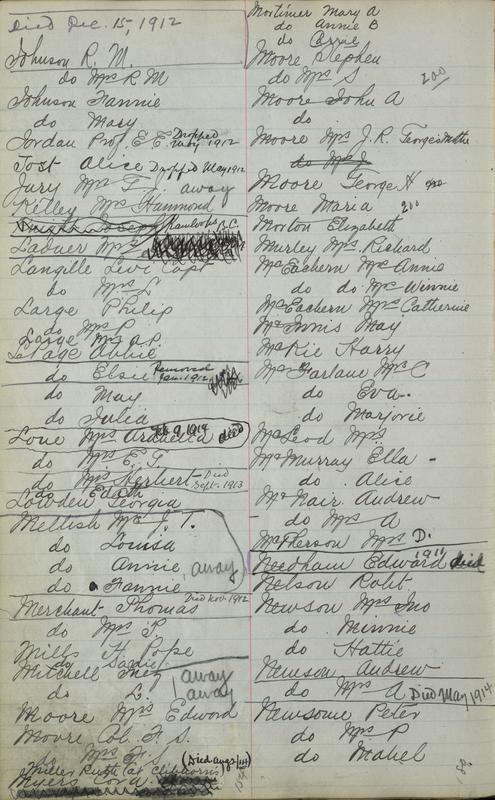 Died Dec. 15, 1912
Johnson R. M.
do Mrs R M
Johnson Fannie
do Mary
Jordan Prof. E E Dropped May 1912
Jost Alice Dropped May 1912
Jury Mrs F. away
Kelley Mrs Hammond
Kamloops B.C.
Ladner Mrs
Langille Levi Capt
do Mrs L
Large Philip
do Mrs P
Large Mrs
LePage Annie
do Elsie Removed Jan. 1912
do May
do Julia
Love Mrs Arabella Feb 9, 1914 died
do Mrs E. G.
do Mrs Herbert Died Sept. 1913
do Edith
Lowden Georgia
Mellish Mr J. T.
do Louisa
do Annie away
do Fannie
Merchant Thomas Died Nov. 1912
do Mrs T
Mills H Pope
do Sadie
Mitchell Inez away
do L. away
Moore Mrs Edward
Moore Col. F. S.
do Mrs F.
Miller Ruth at Clifton's (Died Aug 8/14)
Myers
Mortimer Mary A
do Annie B
do Carrie
Moore Stephen
do Mrs S 200
Moore John A
do
Moore Mrs J. R. George's Mother
do Mrs J
Moore George H
Moore Maria 200
Morton Elizabeth
Murley Mrs Richard
McEachern Mrs Annie
do do Mrs Winnie
McEachern Mrs Catherine
McInnis May
McKie Harry
McFarlane Mrs C
do Eva
do Marjorie
McLeod Mrs
McMurray Ella
do Alice
McNair Andrew
do Mrs A
McPherson Mrs D.
Needham Edward 1911 died
Nelson Robt
Newson Mrs Jno
do Minnie
do Hattie
Newson Andrew
do Mrs A Died May 1914
Newsome Peter
do Mrs P
do Mabel